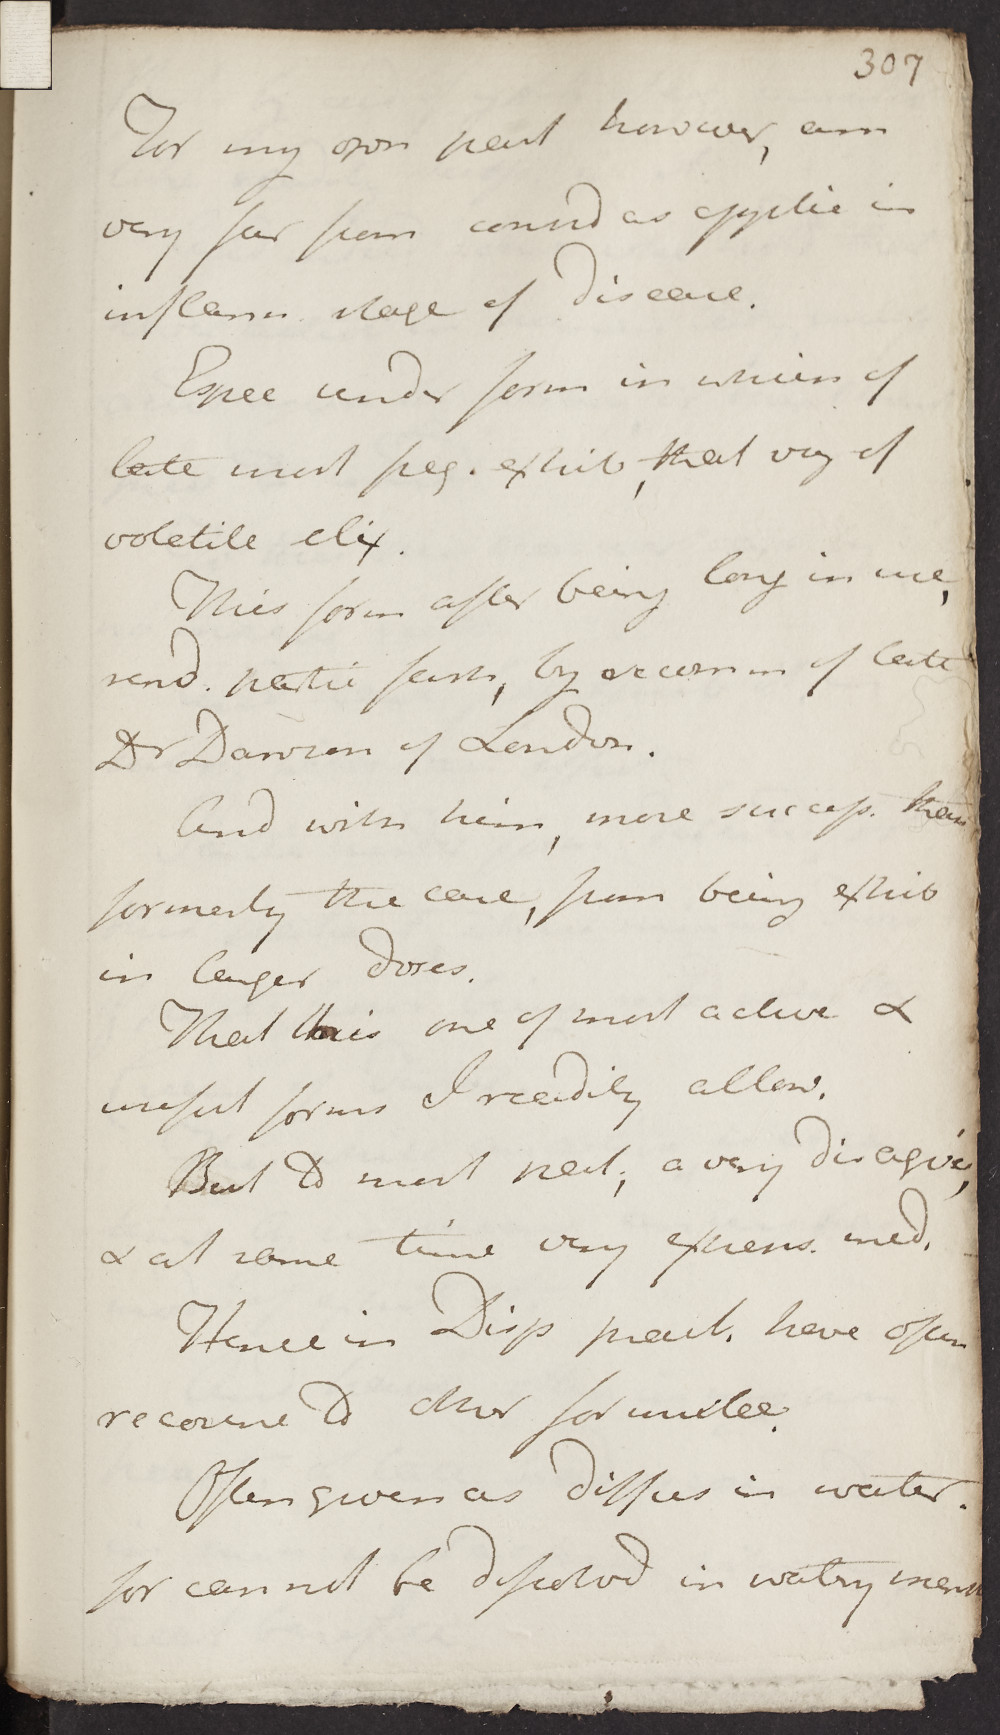 307
For my own part however, am
very far from consid as applic in
inflam. stage of disease.
Espec under form in which of
late most freq. exhib, that viz of
volatile elix.
This form after being long in use,
rend. partic fash, by recomm of late
Dr Dawson of London.
And with him, more success. than
formerly the case, from being exhib
in larger doses.
That this one of most active &
useful forms I readily allow.
But to most pat, a very disagre,
& at same time very expens. med.
Hence in Disp pract. have often
recourse to other formulae.
Often given as diffus in water.
for cannot be dissolvd in watry menst